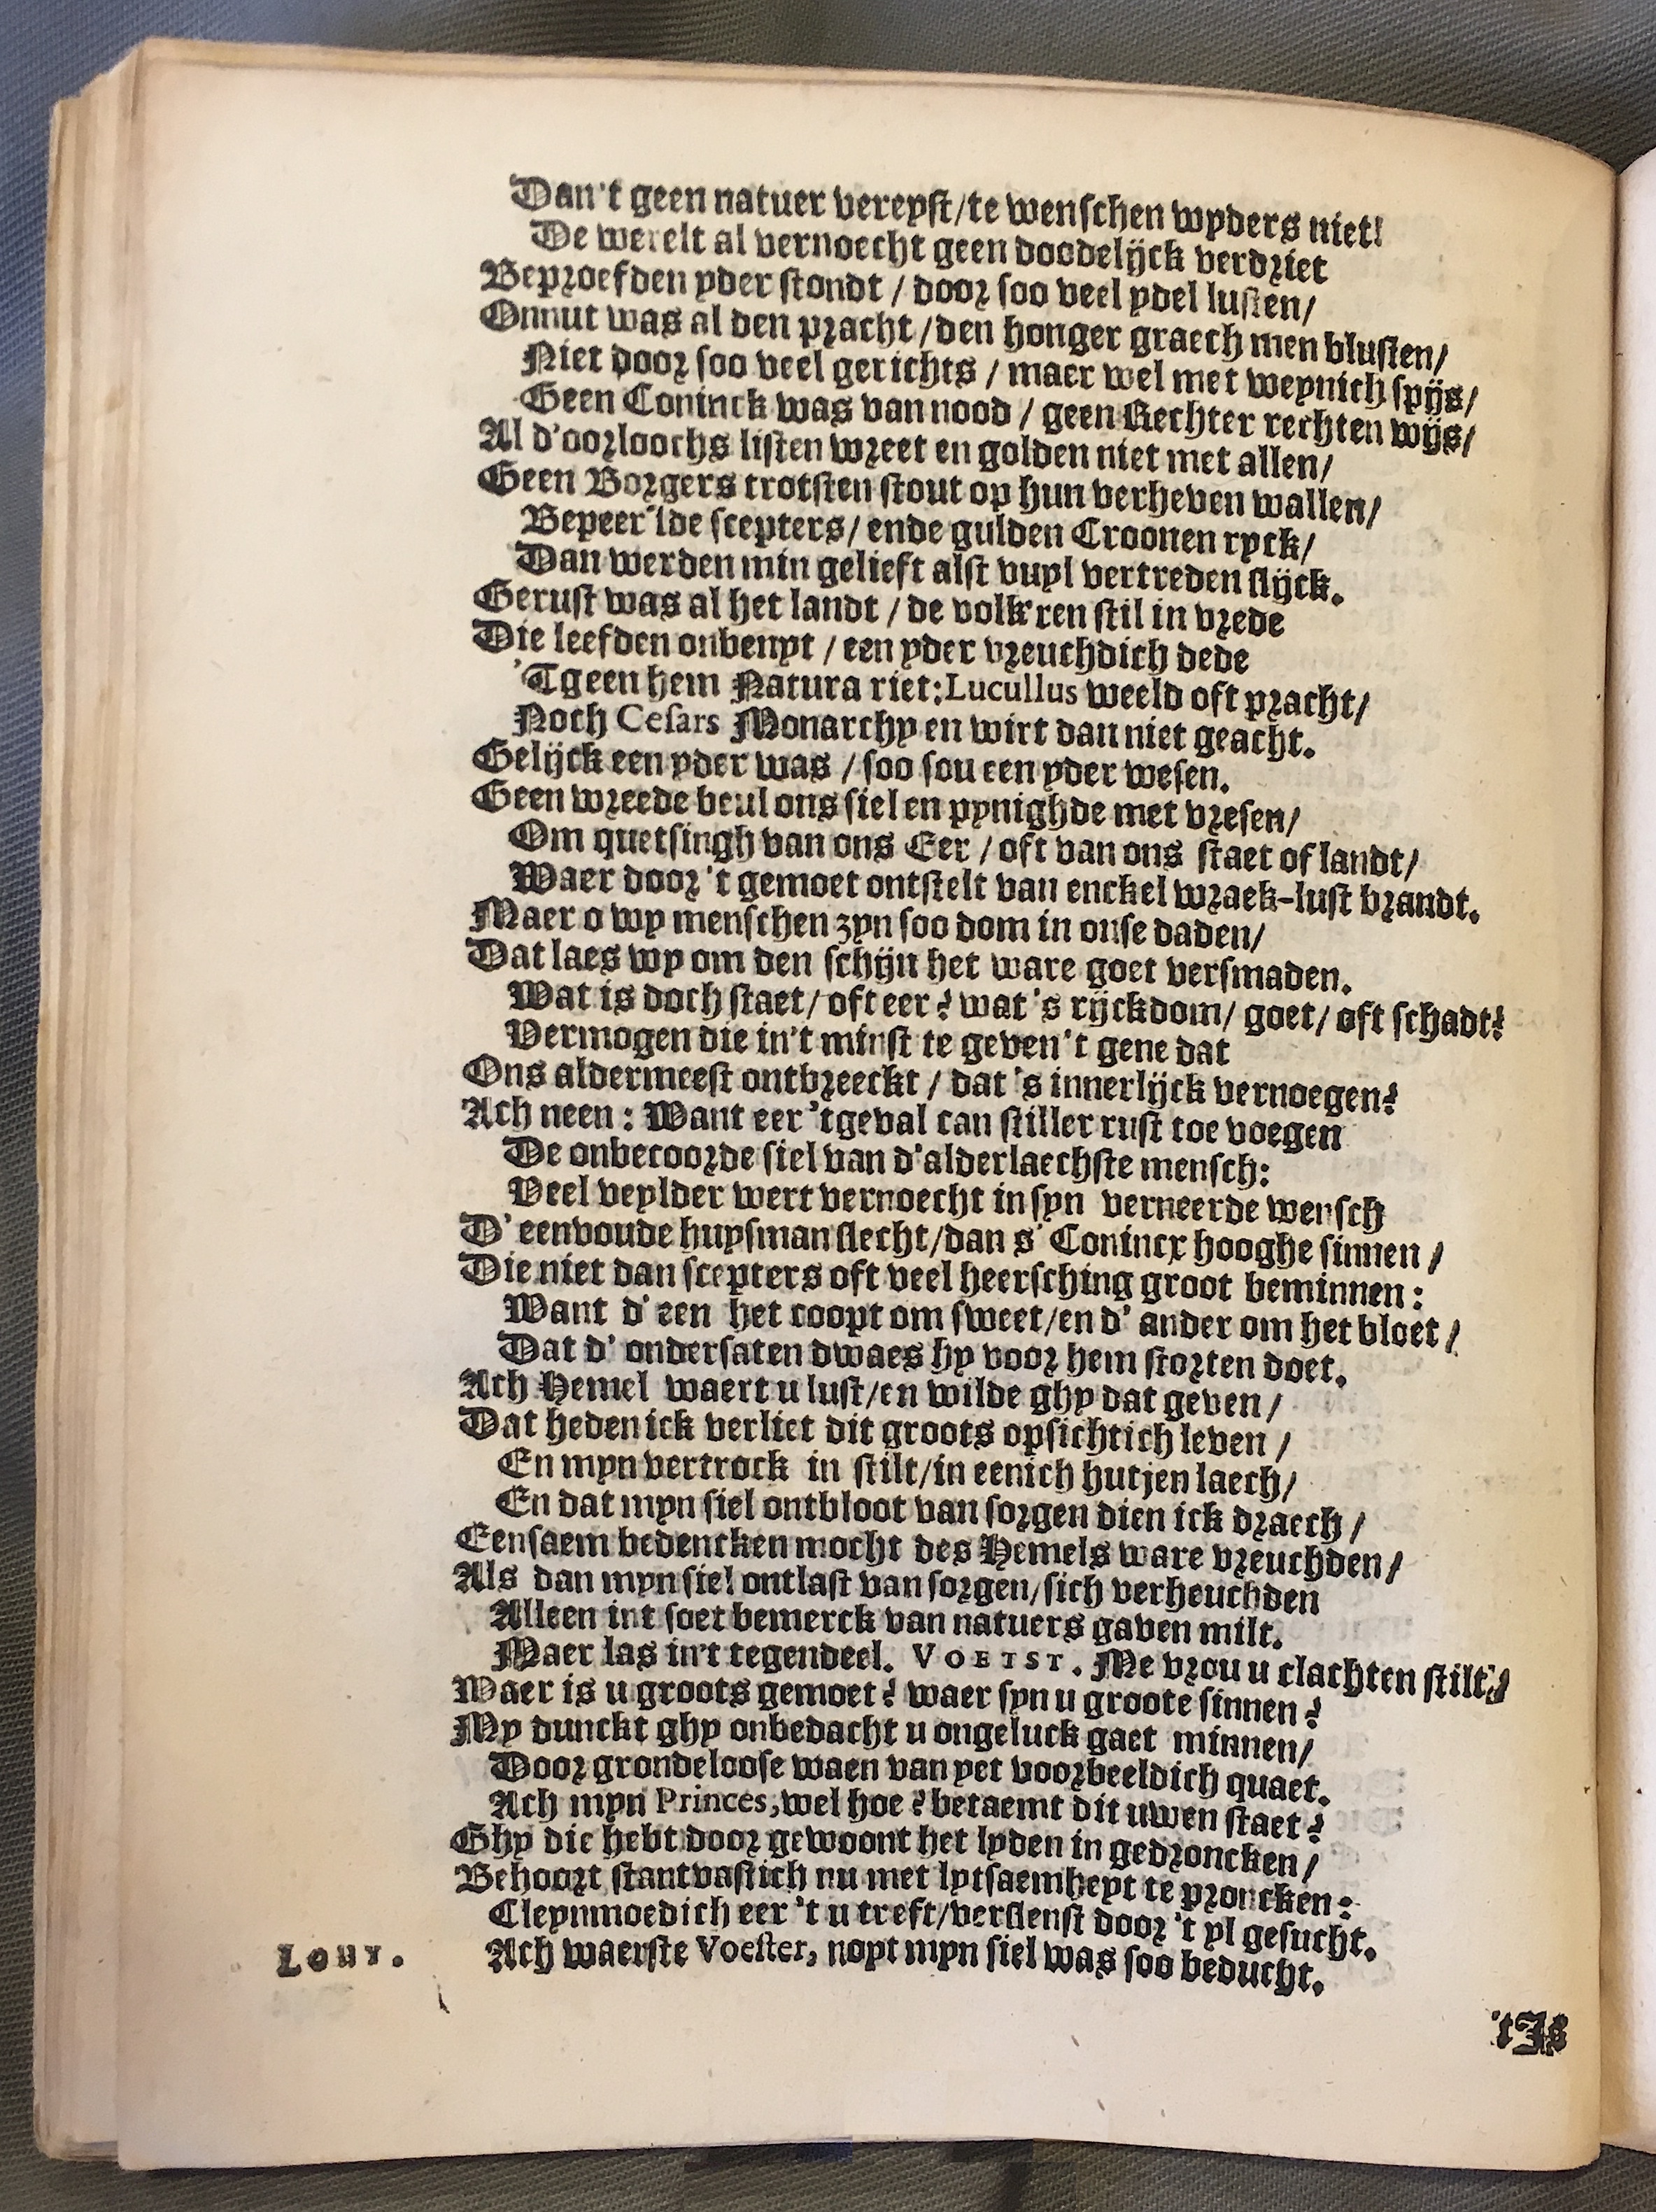 Dan't geen natuer vereyst/te wenschen wyders niet!
De werelt al vernoecht geen doodelijck verdriet
Beproefden yder stondt / door soo veel ydel lusten/
Onnut was al den pracht /den honger graech men blusten/
Niet door soo veel gerichts / maer wel met weynich spijs/
Geen Coninck was van nood / geen Rechter rechten wijs/
Al d'oorloochs listen wreet en golden niet met allen/
Geen Borgers trotsten stout op hun verheven wallen/
Bepeer'lde scepters/ ende gulden Croonen ryck/
Dan werden min gelieft alst vuyl vertreden slijck.
Gerust was al het landt / de volk'ren stil in vrede
Die leefden onbenyt / een yder vreuchdich dede
'Tgeen hem Natura riet: Lucullus weeld oft pracht/
Noch Cesars Monarchy en wirt dan niet geacht.
Gelijck een yder was / soo sou een yder wesen.
Geen wreede beul ons siel en pynighde met vresen/
Om quetsingh van ons Eer / oft van ons staet of landt/
Waer door 't gemoet ontstelt van enckel wraek-lust brandt.
Maer o wy menschen zyn soo dom in onse daden/
Dat laes wy om den schijn het ware goet versmaden.
Wat is doch staet/ oft eer? wat 's rijckdom/ goet/ oft schadt?
Vermogen die in't minst te geven 't gene dat
Ons aldermeest ontbreeckt / dat 's innerlijck vernoegen?
Ach neen: Want eer 'tgeval can stiller rust toe voegen
De onbecoorde siel van d'alderlaechste mensch:
Veel veylder wert vernoecht in syn verneerde wensch
D' eenvoude huysman slecht/dan s' Conincx hooghe sinnen /
Die niet dan scepters oft veel heersching groot beminnen:
Want d' een het coopt om sweet/en d' ander om het bloet /
Dat d' ondersaten dwaes hy voor hem storten doet.
Ach Hemel waert u lust/en wilde ghy dat geven /
Dat heden ick verliet dit groots opsichtich leven /
En myn vertrock in stilt/in eenich hutjen laech/
En dat myn siel ontbloot van sorgen dien ick draech /
Eensaem bedencken mocht des Hemels ware vreuchden/
Als dan myn siel ontlast van sorgen/sich verheuchden
Alleen int soet bemerck van natuers gaven milt.
Maer las in't tegendeel. VOETST. Me vrou u clachten stilt/
Waer is u groots gemoet? waer syn u groote sinnen?
My dunckt ghy onbedacht u ongeluck gaet minnen/
Door grondeloose waen van yet voorbeeldich quaet.
Ach myn Princes, wel hoe? betaemt dit uwen staet?
Ghy die hebt door gewoont het lyden in gedroncken/
Behoort stantvastich nu met lytsaemheyt te proncken:
Cleynmoedich eer 't u treft/verslenst door 't yl gesucht.
Louy. Ach waerste Voester, noyt myn siel was soo beducht.
'tIs